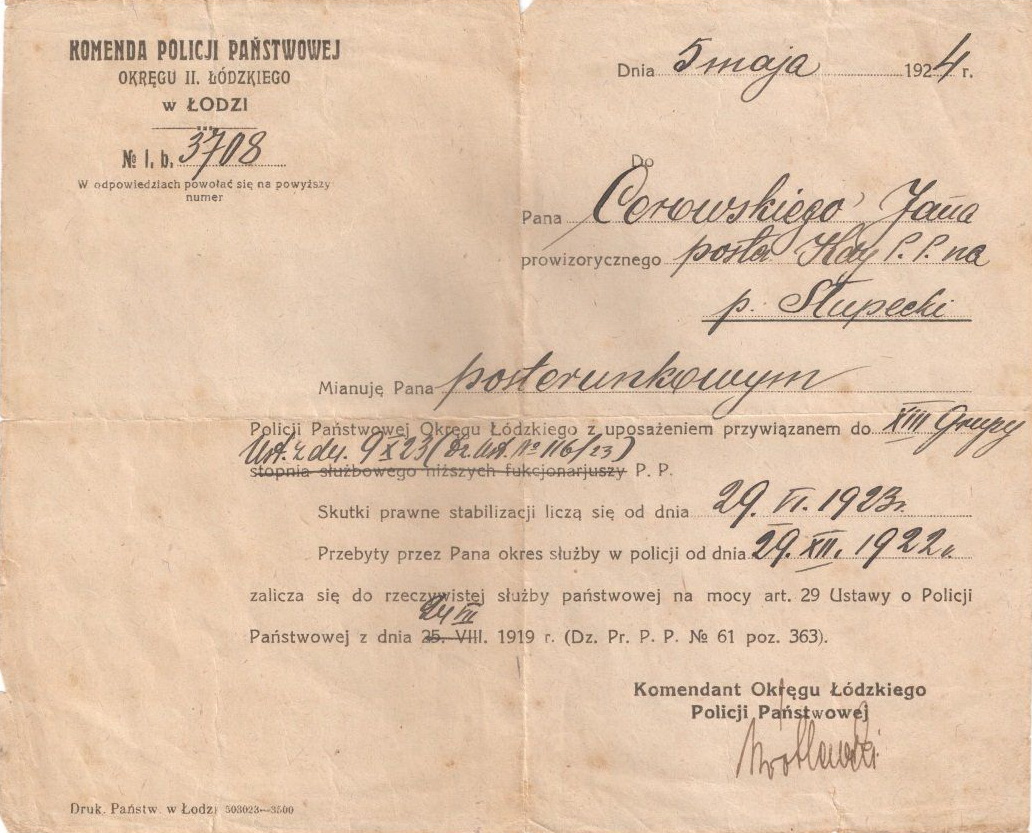 KOMENDA POLICJI PAŃSTWOWEJ
OKRĘGU II. ŁÓDZKIEGO
w ŁODZI
№ l. b. 3708
W odpowiedziach powołać się na powyższy
numer
Dnia 5 maja 1924 r.
Do
Pana Cerowskiego Jana
prowizorycznego poster. Kdy P. P. na
p. Słupecki
Mianuję Pana posterunkowym
Policji Państwowej Okręgu Łódzkiego z uposażeniem przywiązanem do XIII Grupy
Ust. z dn. 9 X 23 (Dz. Ust. № 116/23)
stopnia służbowego niższych fukcjonarjuszy P. P.
Skutki prawne stabilizacji liczą się od dnia 29. VI. 1923 r.
Przebyty przez Pana okres służby w policji od dnia 29. XII. 1922 r.
zalicza się do rzeczywistej służby państwowej na mocy art. 29 Ustawy o Policji
24 VII
Państwowej z dnia 25. VIII. 1919 r. (Dz. Pr. P. P. № 61 poz. 363).
Komendant Okręgu Łódzkiego
Policji Państwowej
Druk. Państw. w Łodzi 503023—3500